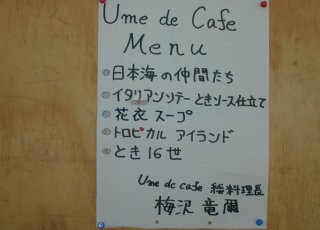 Ume de Cafe
Menu
◎日本海の仲間たち
◎イタリアンソテー ときソース仕立て
◎花衣 スープ
◎トロピカル アイランド
◎とき16世
Ume de cafe 総料理長
梅沢 竜爾